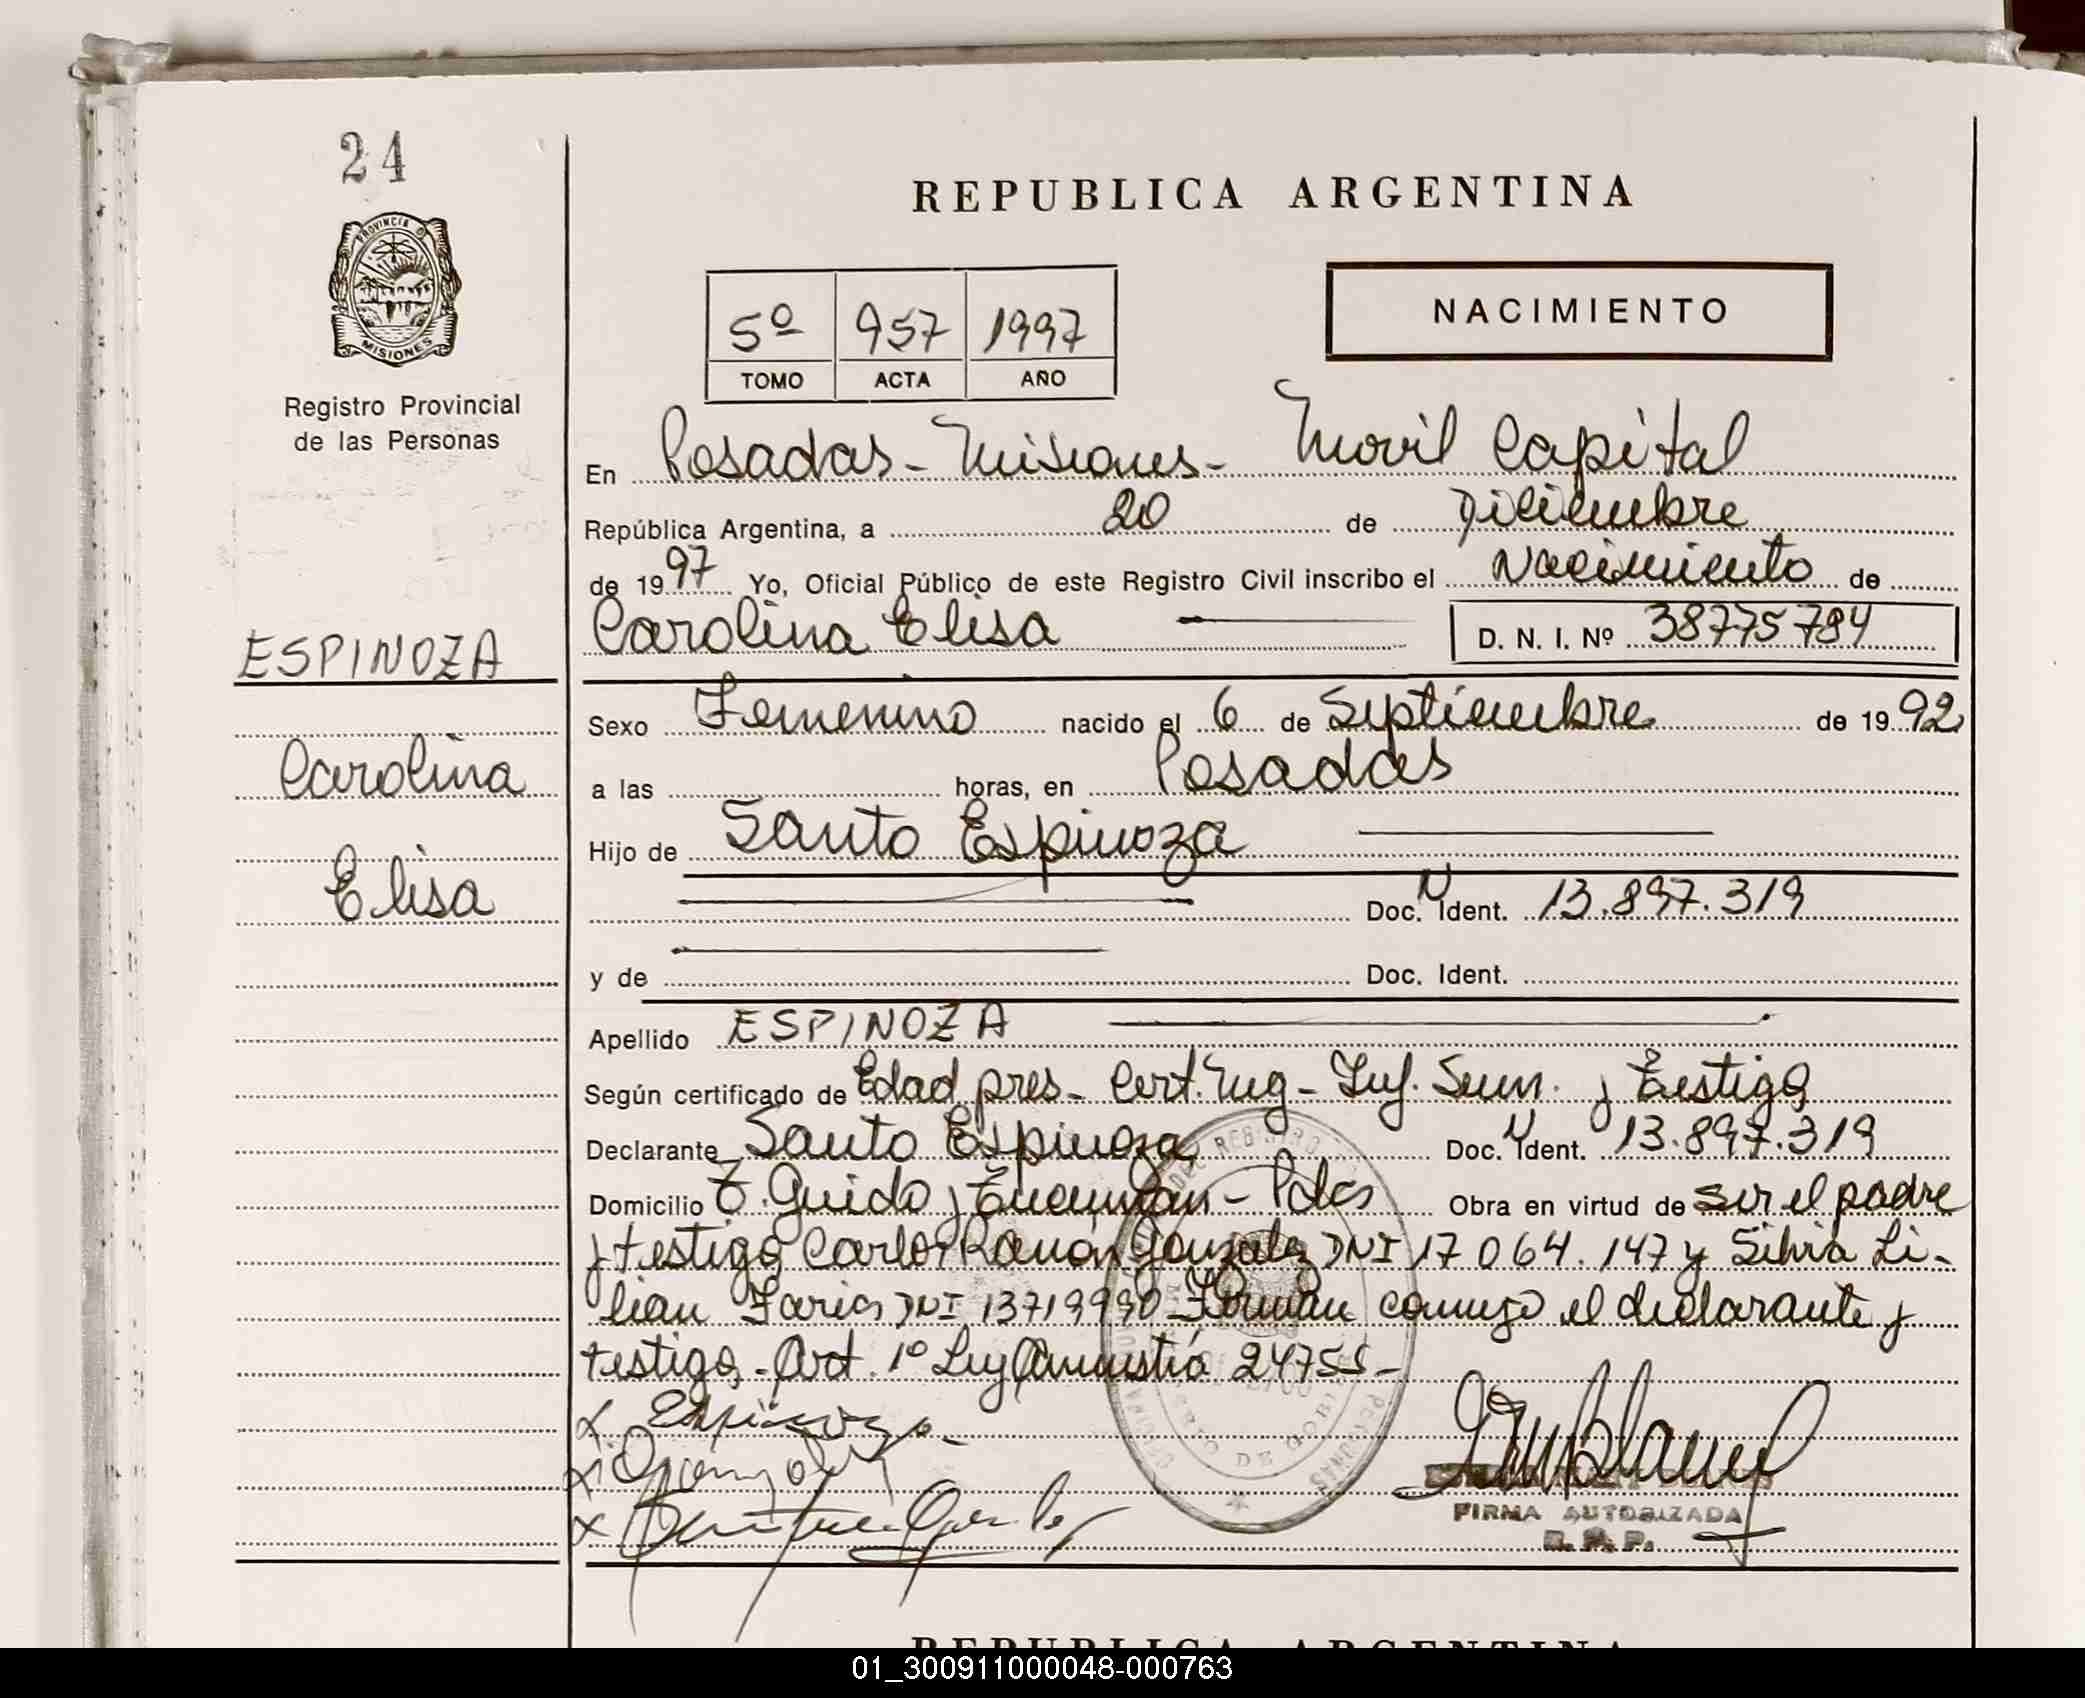 24
REPUBLICA ARGENTINA
PROVINCIA DE
MISIONES
5º 957 1997
TOMO ACTA AÑO
NACIMIENTO
Registro Provincial
de las Personas
En Posadas - Misiones - Movil Capital
República Argentina, a 20 de Diciembre
de 1997 Yo, Oficial Público de este Registro Civil inscribo el Nacimiento de
Carolina Elisa D. N. I. Nº 38775784
ESPINOZA
Carolina
Elisa
Sexo Femenino nacido el 6 de Septiembre de 1992
a las horas, en Posadas
Hijo de Santo Espinoza
Doc. N Ident. 13.897.319
y de Doc. Ident.
Apellido ESPINOZA
Según certificado de Edad pres - Cert. Neg - Inf. Sum. y Testigos
Declarante Santo Espinoza Doc. N Ident. 13.897.319
Domicilio T. Guido y Tucumán - Pdas Obra en virtud de ser el padre
y testigos Carlos Ramón Gonzalez DNI 17 064.147 y Silvia Li-
lian Farias DNI 13719990 Firman conmigo el declarante y
testigos - Art. 1º Ley Amnistía 24755 -
x Espinoza
x
x
FIRMA AUTORIZADA
R. P. P.
REPUBLICA ARGENTINA
01_300911000048-000763